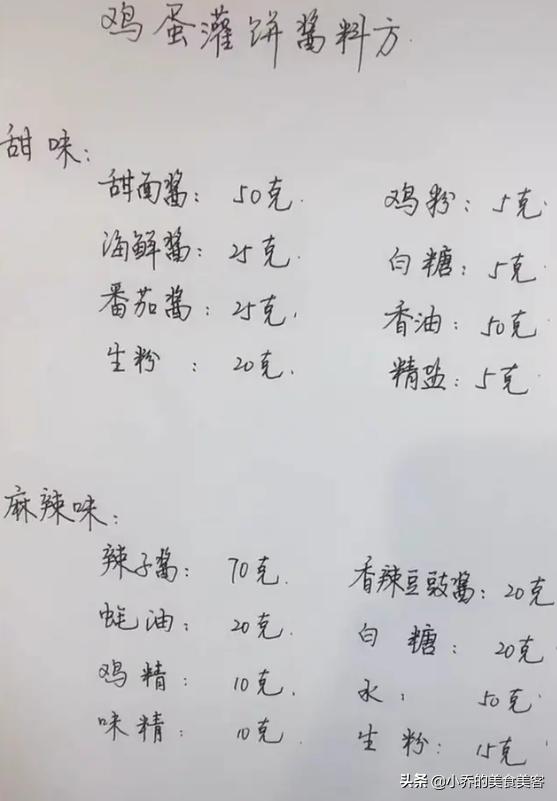 鸡蛋灌饼酱料方.
甜味:
甜面酱: 50克. 鸡粉: 5克.
海鲜酱: 25克. 白糖: 5克.
番茄酱: 25克. 香油: 50克
生粉: 20克. 精盐: 5克
麻辣味:
辣子酱: 70克. 香辣豆豉酱: 20克
蚝油: 20克. 白糖: 20克
鸡精: 10克. 水: 50克
味精: 10克. 生粉: 15克
头条 @小乔的美食美客